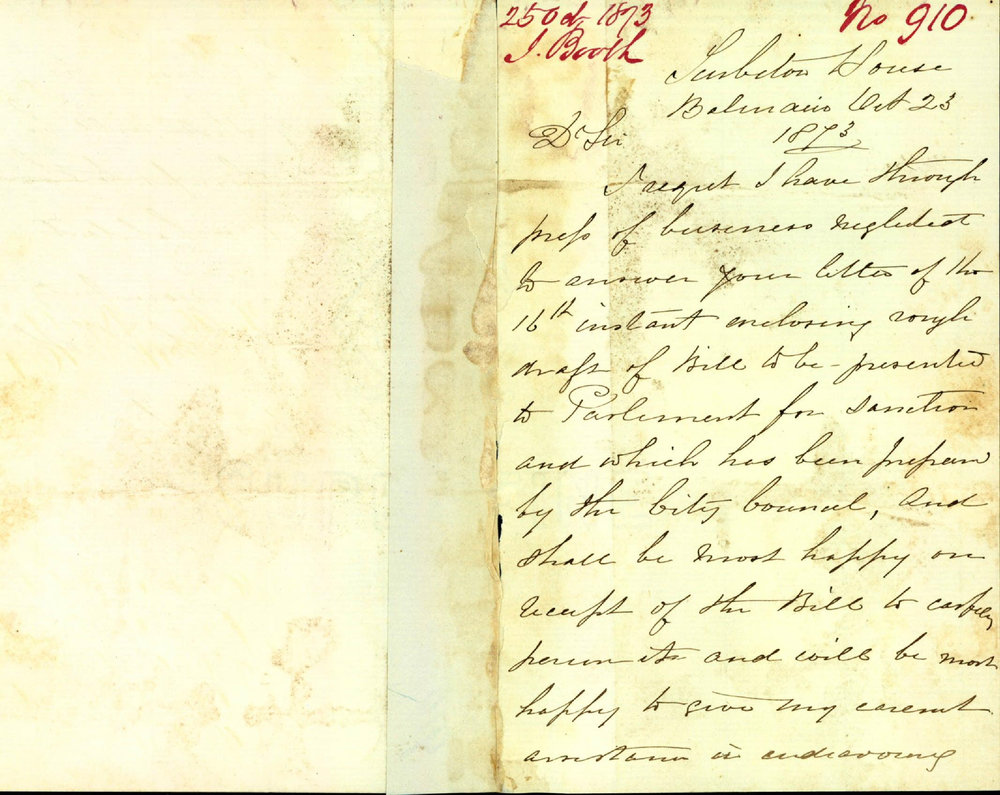 25 Oct 1873
J. Booth
No 910
Surbiton House
Balmain Oct 23
1873
Dr Sir
I regret I have through
press of business neglected
to answer your letter of the
16th instant enclosing rough
draft of Bill to be presented
to Parlement for sanction
and which has been prepared
by the City Council, and
shall be most happy on
receipt of the Bill to carefully
peruse it and will be most
happy to give my earnest
assistance in endeavouring